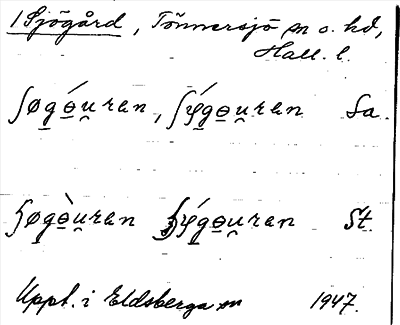 1 Sjögård, Tönnersjö sn o. hd,
Hall. l.
ʃøgɵ́u̯ren, ʃǿgɵu̯ren Sa.
ʃøgɵ̀u̯ren ʃǿgɵu̯ren St.
Uppt. i Eldsberga sn 1947.